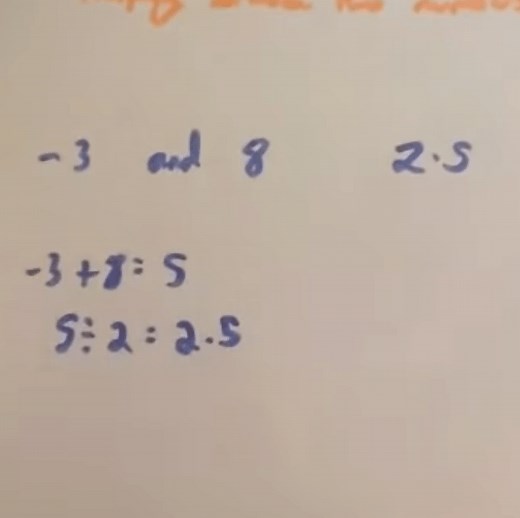 -3 and 8 2.5
-3+8=5
5÷2=2.5